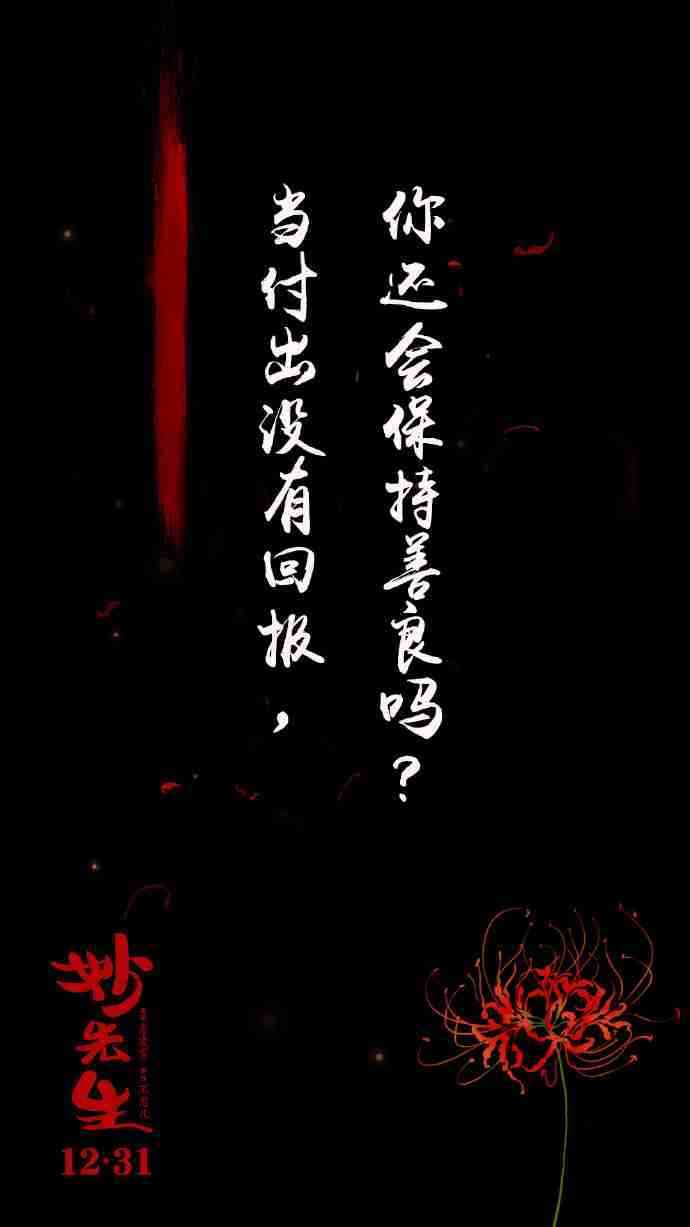 当付出没有回报，
你还会保持善良吗？
妙先生
12·31